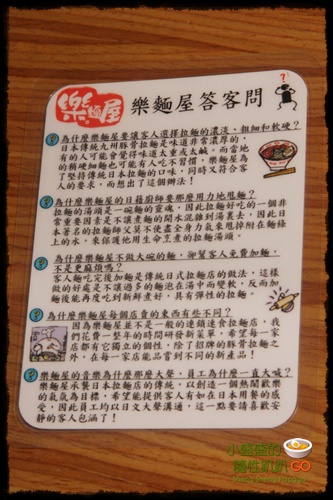 樂麵屋
樂麵屋答客問
為什麼樂麵屋要讓客人選擇拉麵的濃淡、粗細和軟硬？
日本傳統九州豚骨拉麵是味道非常濃厚的，
有的人可能會覺得味道太重或太鹹。而當地
的稍硬細麵也可能有人吃不習慣，樂麵屋為
了堅持傳統日本拉麵的口味，同時又符合客
人的要求，而想出了這個辦法！
為什麼樂麵屋的日籍廚師要那麼用力地甩麵？
拉麵的湯頭是一碗麵的靈魂，因此拉麵好吃的一個非
常重要因素是不讓煮麵的開水混雜到湯裏去，因此日
本著名的拉麵師父莫不使盡全身力氣來甩掉附在麵條
上的水，來保護他用生命烹煮的拉麵湯頭。
為什麼樂麵屋不做大碗的麵，卻幫客人免費加麵，
不是更麻煩嗎？
客人麵吃完後加麵是傳統日式拉麵店的做法，這樣
做的好處是不讓過多的麵泡在湯中而變軟，反而加
麵後能再度吃到新鮮煮好，具有彈性的拉麵。
為什麼樂麵屋每個店賣的東西有些不同？
因為樂麵屋並不是一般的連鎖速食拉麵店，我
們花費一整年的時間研發新菜單，希望每一家
店都有它獨立的個性，除了招牌的豚骨拉麵之
外，在每一家店能品嘗到不同的新產品！
樂麵屋的音樂為什麼那麼大聲，員工為什麼一直大喊？
樂麵屋承襲日本拉麵店的傳統，以創造一個熱鬧歡樂
的氣氛為目標，希望能提供客人有如在日本用餐的感
受，因此員工均以日文大聲溝通，這一點要請喜歡安
靜的客人包涵了！
小盛盛的
隨性趴趴GO